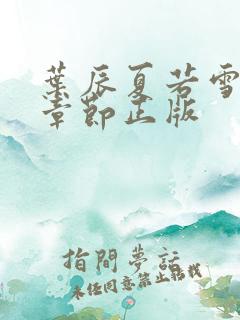 葉辰夏若雪
章節正版
指間夢話
未经同意禁止转载